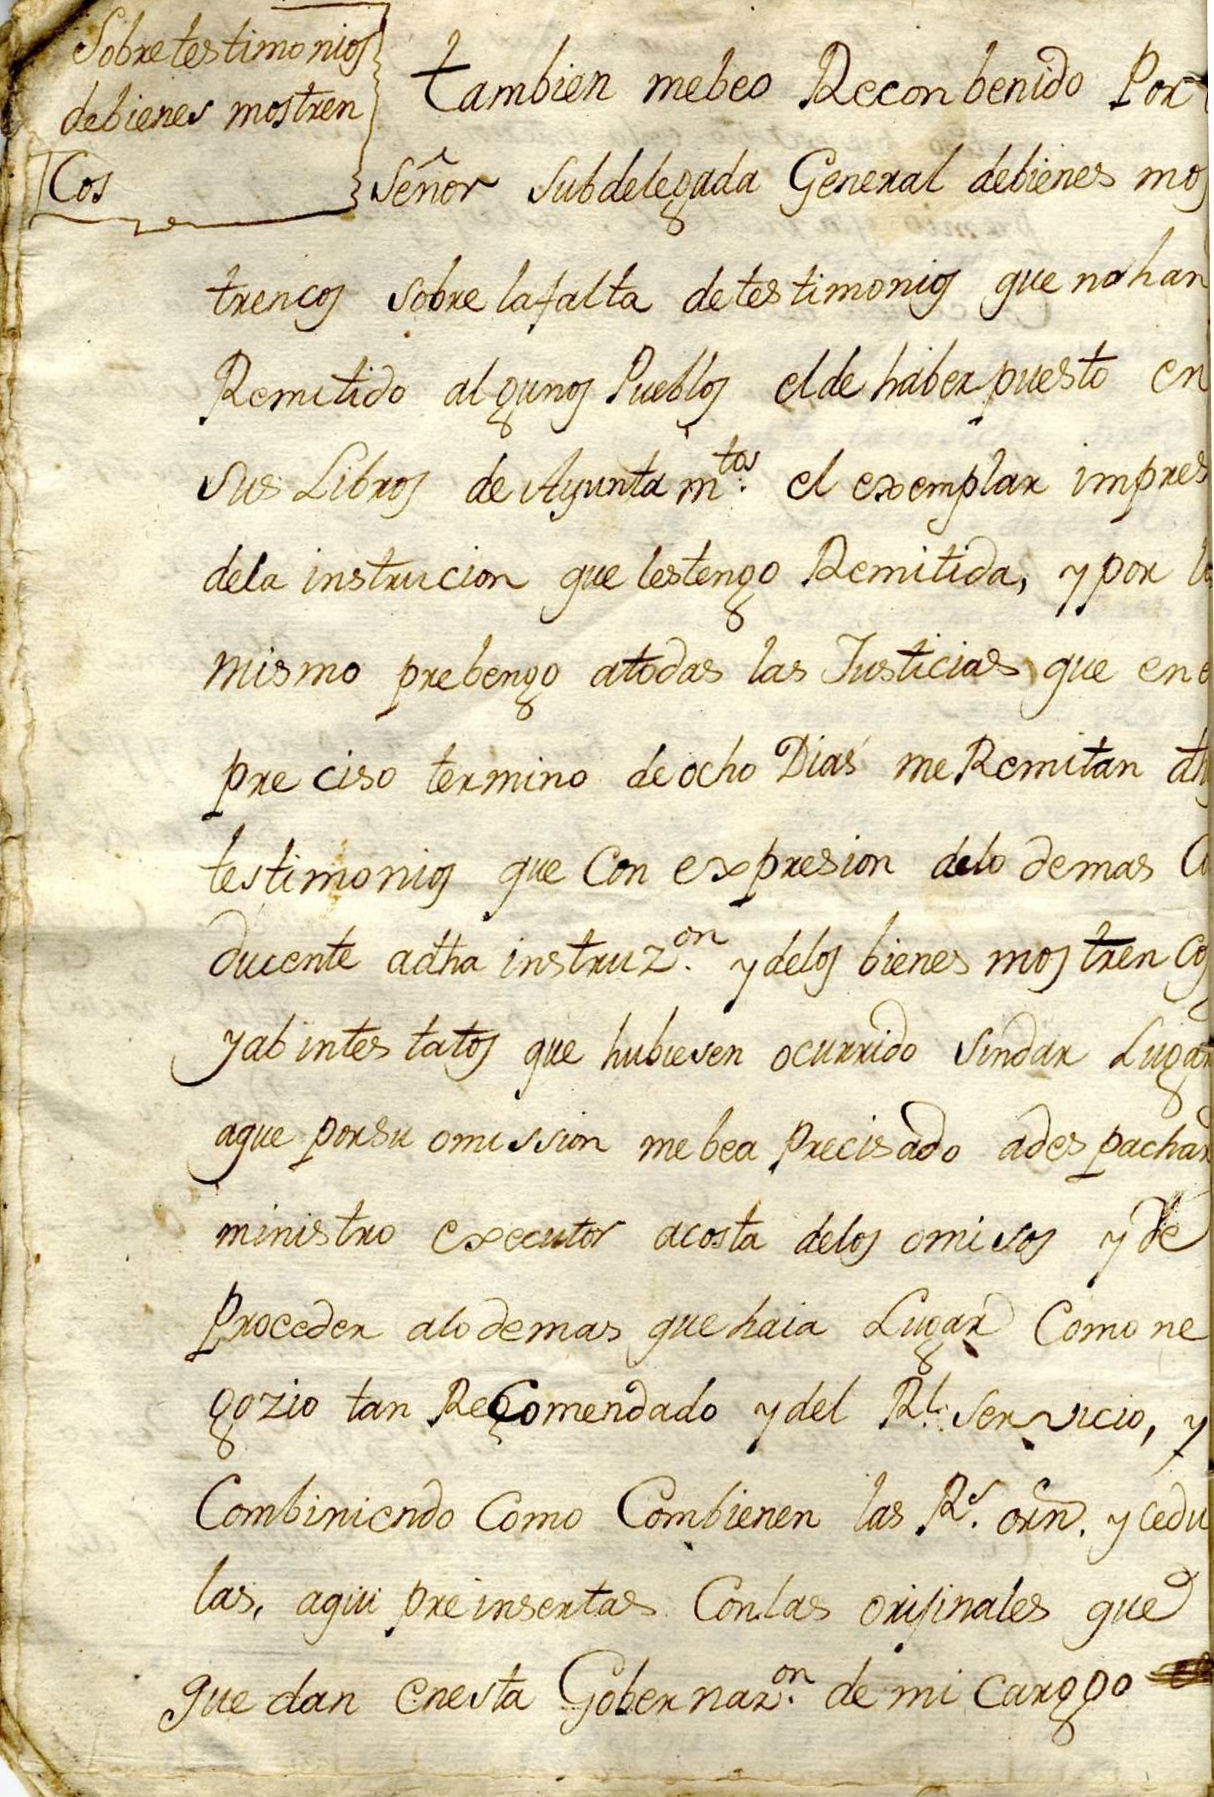 Sobretestimonios
debienes mostren
Cos
tambien mebeo Reconbenido Por
señor subdelegada General debienes mos
trencos sobre lafalta detestimonios que no han
Remitido algunos Pueblos elde haber puesto en
sus Libros de Ayuntamtos. el exemplar impres
dela instrucion que lestengo Remitida, y por lo
mismo prebengo atodas las Justicias que en e
preciso termino de ocho Dias me Remitan dhos
testimonios que Con expresion delo demas Co
ducente adha instruzon. y delos bienes mostrencos
y abintestatos que hubiesen ocurrido sindar Lugar
aque porsu omission me bea Precisado ades pachar
ministro executor acosta delos omisos y de
Proceder alodemas que haia Lugar Como ne
gozio tan ReComendado y del Rl. servicio, y
Combiniendo Como Combienen las Rs. orn. y cedu
las, aqui preinsertas Conlas orijinales que
que dan enesta Gobernazon. de mi cargo